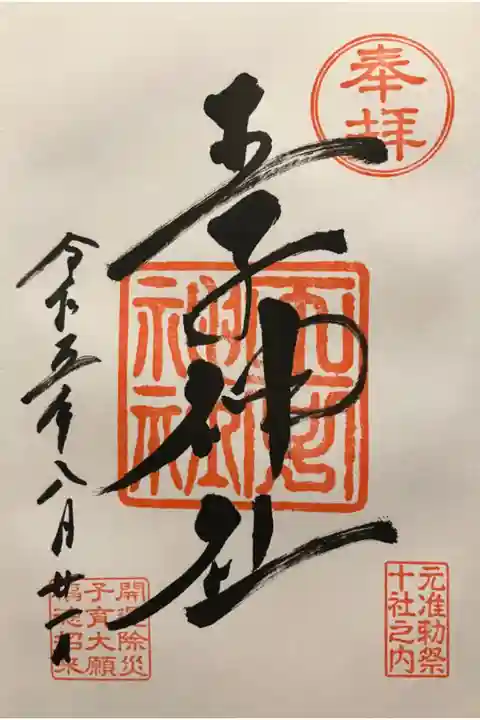 奉拝
元准勅祭
十社之内
王子神社
令和五年八月廿一日
開運除災
子育大願
福徳招来